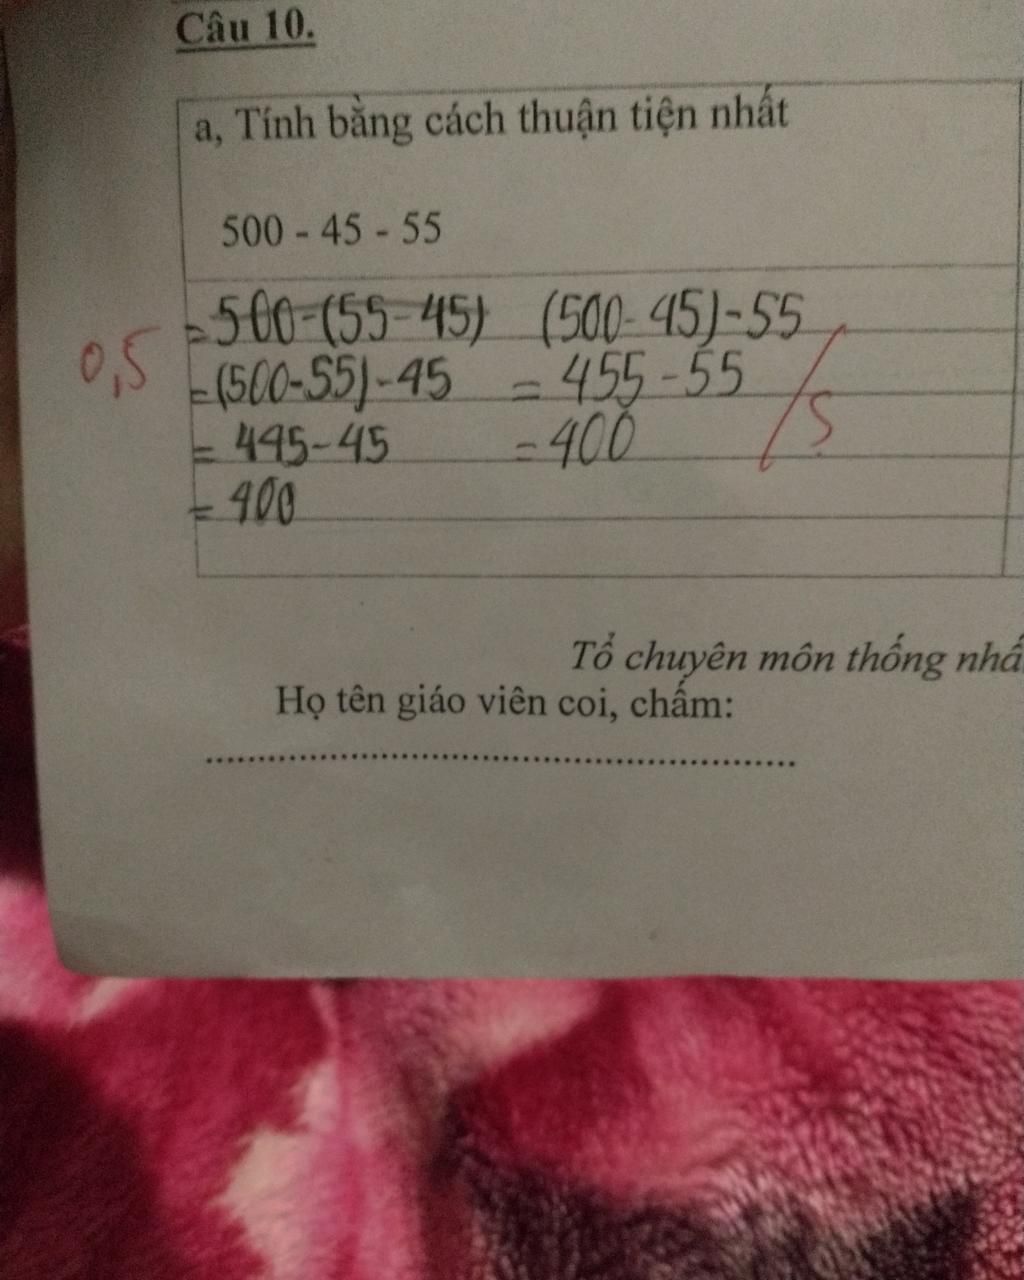 Câu 10.
a, Tính bằng cách thuận tiện nhất
500 - 45 - 55
= 500-(55-45) (500-45)-55
0,5
= (500-55)-45 = 455-55
= 445-45 = 400
S
= 400
Tổ chuyên môn thống nhấ
Họ tên giáo viên coi, chấm: